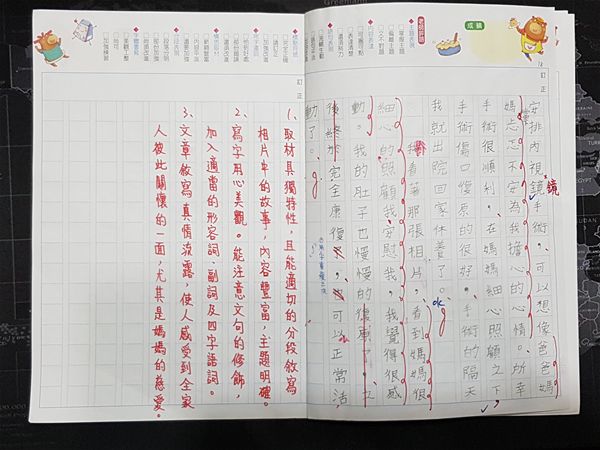 成績
老師評語
主題表現
掌握主題
偏離主題
文不對題
內容表達
可圈可點
表達清楚
還須努力
訂正
安排內視鏡手術。可以想像爸爸媽
鏡
媽忐忑不安為我擔心的心情。所幸
手術很順利,在媽媽細心照顧之下
手術傷口復原的很好。手術的隔天
我就出院回家休養了。
ok
看著那張相片,看到媽媽很
細心的照顧我、安慰我,我覺得很感
動。我的肚子也慢慢的復原了。
完全康復,可以正常活
動了。
訂正
1、取材具獨特性,且能適切的分段敘寫
相片中的故事,內容豐富,主題明確。
2、寫字用心美觀。能注意文句的修飾,
加入適當的形容詞、副詞及四字語詞。
3、文章敘寫真情流露,使人感受到全家
人彼此關懷的一面,尤其是媽媽的慈愛。